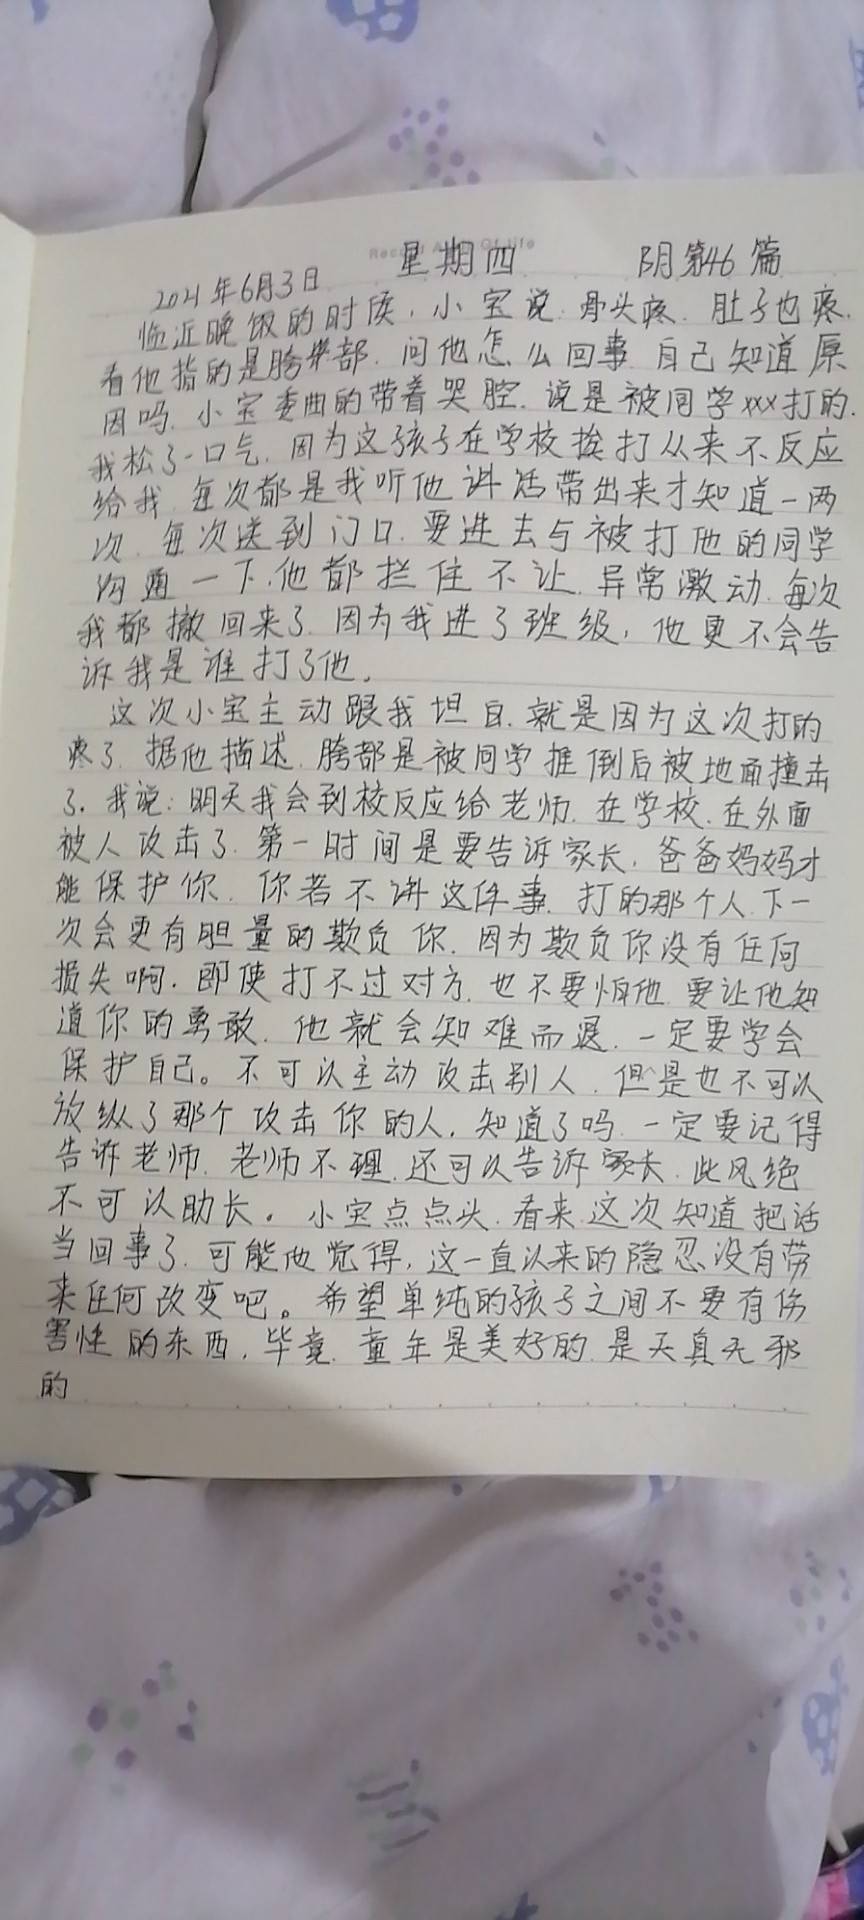 Record A Of life
2021年6月3日 星期四 阴 第46篇
临近晚饭的时候，小宝说.骨头疼.肚子也疼.
看他指的是胯部.问他怎么回事.自己知道原
因吗.小宝委曲的带着哭腔.说是被同学xxx打的.
我松了一口气.因为这孩子在学校挨打从来不反应
给我.每次都是我听他讲话带出来才知道一两
次.每次送到门口.要进去与被打他的同学
沟通一下.他都拦住不让.异常激动.每次
我都撤回来了.因为我进了班级，他更不会告
诉我是谁打了他。
这次小宝主动跟我坦白.就是因为这次打的
疼了.据他描述.胯部是被同学推倒后被地面撞击
了.我说：明天我会到校反应给老师.在学校.在外面
被人攻击了.第一时间是要告诉家长.爸爸妈妈才
能保护你.你若不讲这件事.打的那个人.下一
次会更有胆量的欺负你.因为欺负你没有任何
损失啊.即使打不过对方.也不要怕他.要让他知
道你的勇敢.他就会知难而退.一定要学会
保护自己。不可以主动攻击别人.但是也不可以
放纵了那个攻击你的人.知道了吗.一定要记得
告诉老师.老师不理.还可以告诉家长.此风绝
不可以助长。小宝点点头.看来.这次知道把话
当回事了.可能他觉得，这一直以来的隐忍没有带
来任何改变吧。希望单纯的孩子之间不要有伤
害性的东西.毕竟.童年是美好的.是天真无邪
的